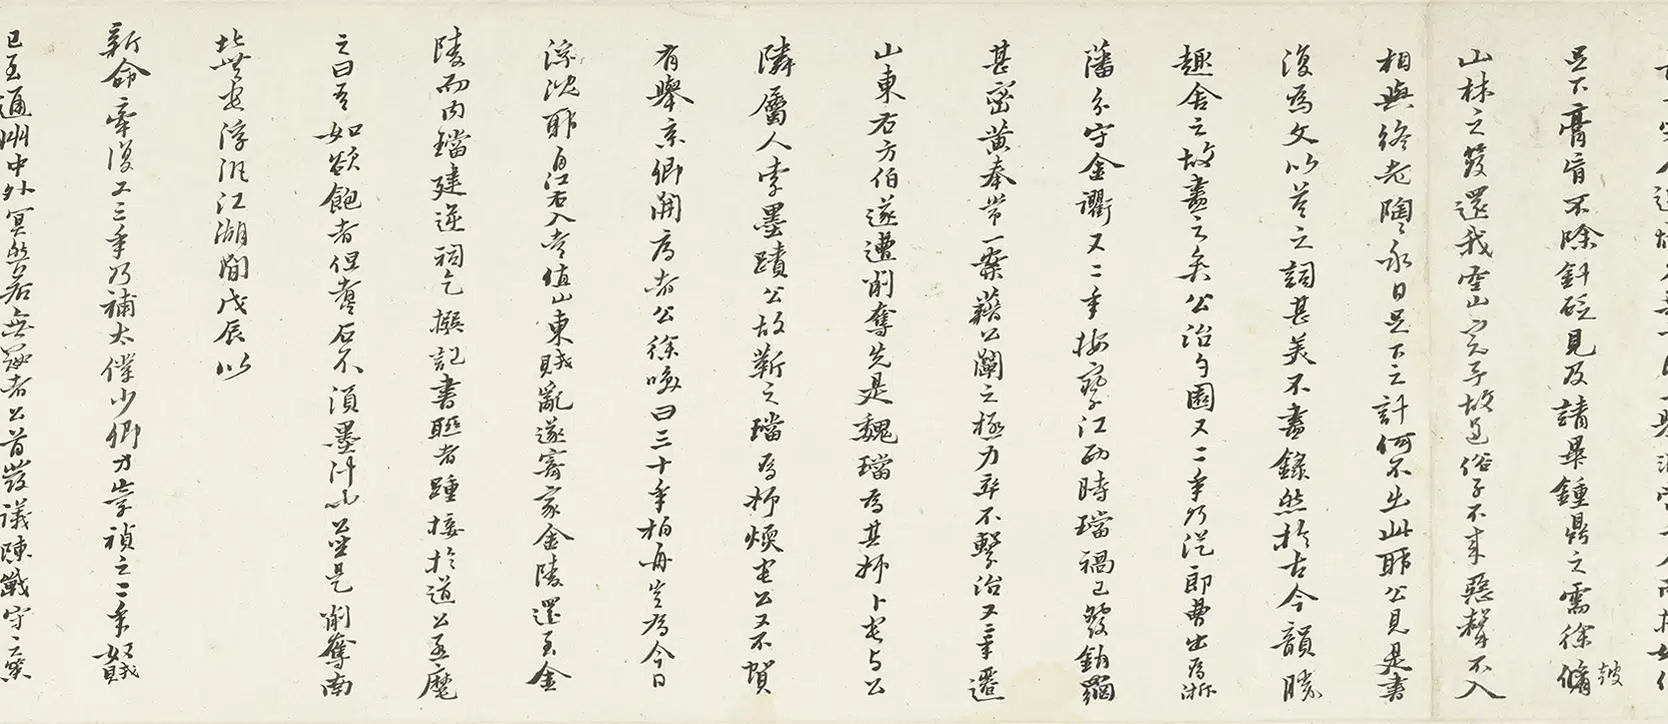 足下膏肓不除針砭見及請畢鍾鼎之需徐脩
皷
山林之簽還我空山宗子故遠俗子不來惡聲不入
相與終老陶陶永日足下之計何不出此耶公見是書
復為文以答之詞甚美不盡錄然於古今韻勝
趣舍之故盡之矣公治匀園又二年乃從郎曹出為浙
藩分守金衢又二年按察江西時璫禍已發鉤網
甚密黃奉常一案藉公闌之極力卒不繫治又二年遷
山東右方伯遂遭削奪先是魏璫為其姊卜宅與公
隣屬人索墨蹟公故靳之璫為姊煥宅公又不賀
有舉京卿開府者公徐唉曰三十年柏舟豈為今日
浮沈耶自江右入賀值山東賊亂遂寄家金陵還至金
陵而內璫建逆祠乞撰記書聯者踵接於道公並麾
之曰吾如欲飽者但煮石不須墨汁也公並是削奪南
北豈安浮沉江湖間戊辰以
新命牽復又三年乃補太僕少卿方崇禎之二年賊
已至通州中外冥然若無敵者公首發議陳戰守之策